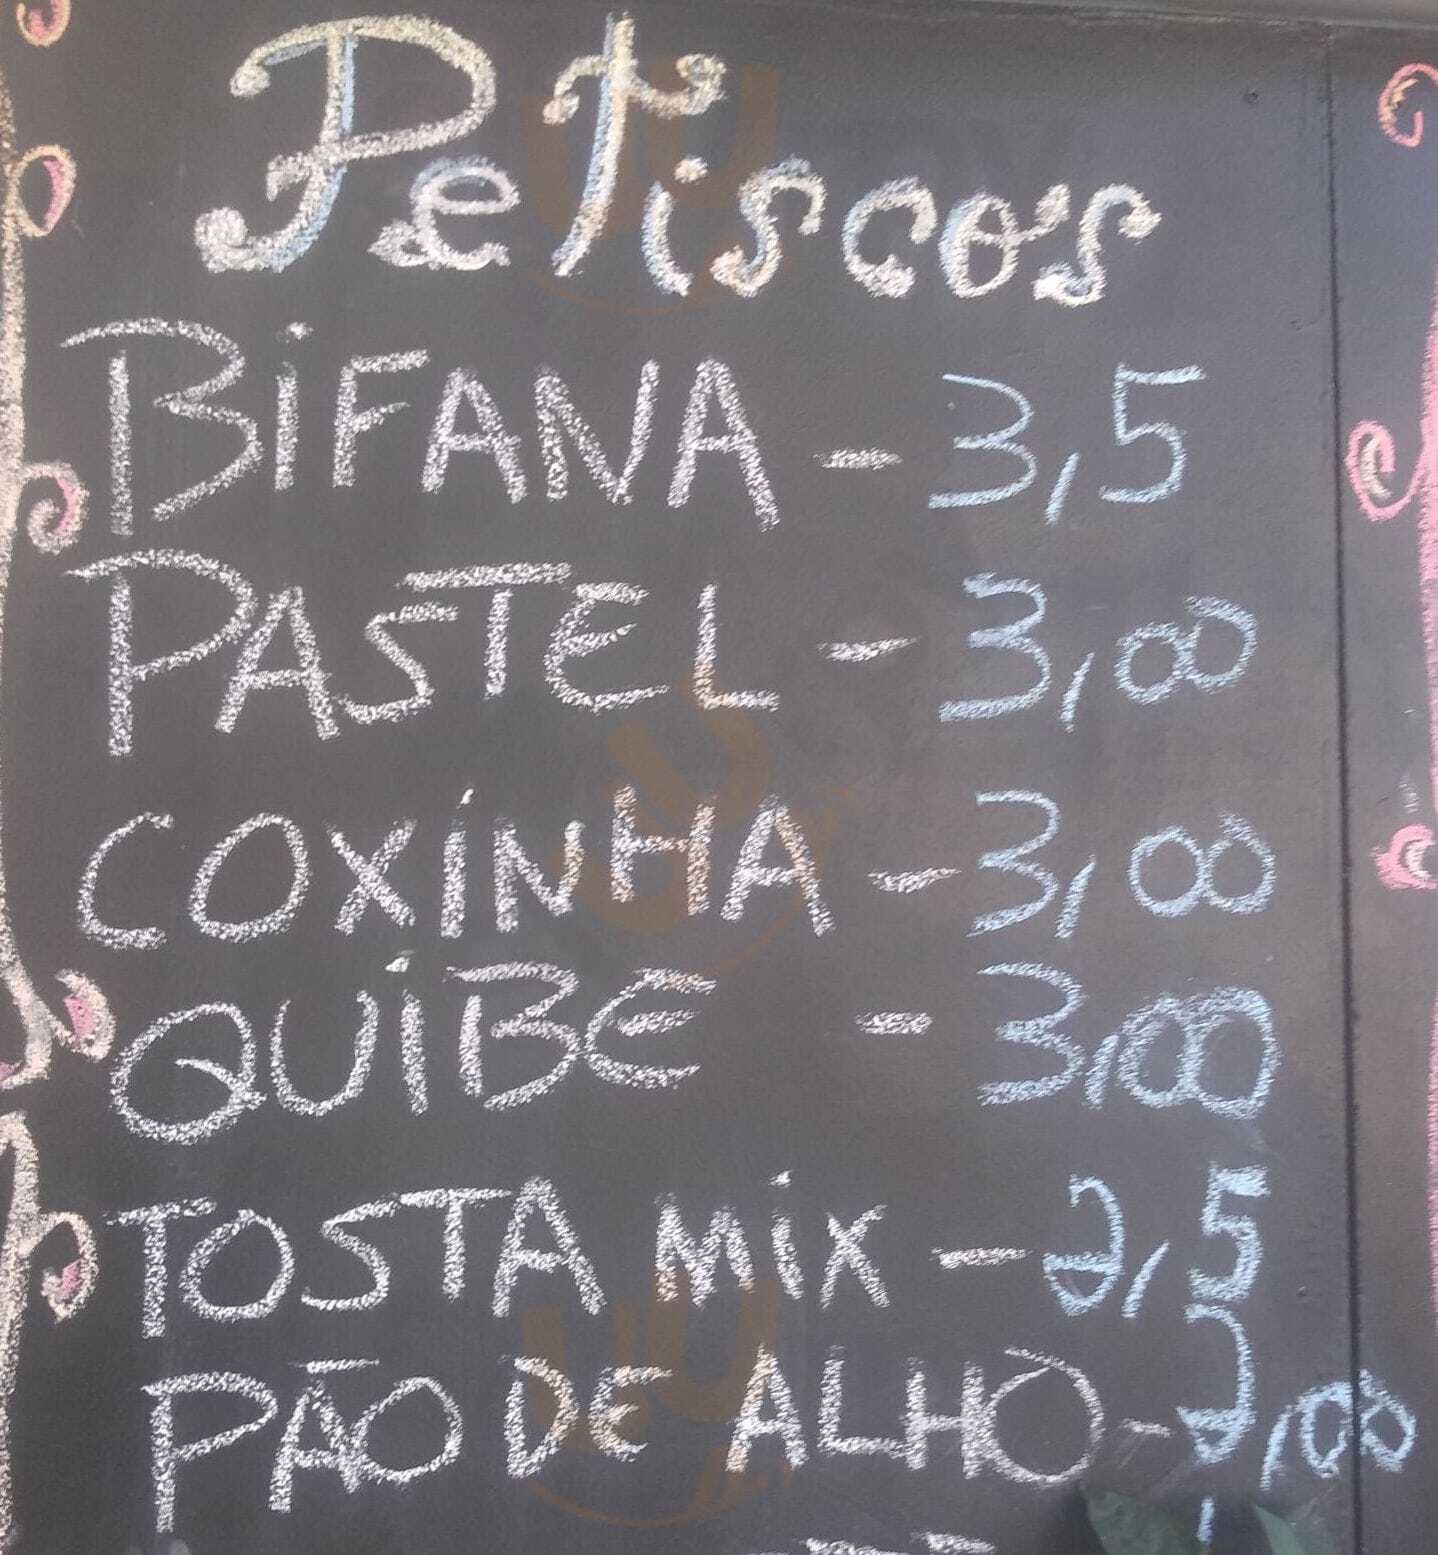 Petiscos
BiFANA - 3,5
PASTEL - 3,00
COXiNHA - 3,00
QUiBE - 3,00
TOSTA MiX - 2,5
PÃO DE ALHO - 2,00